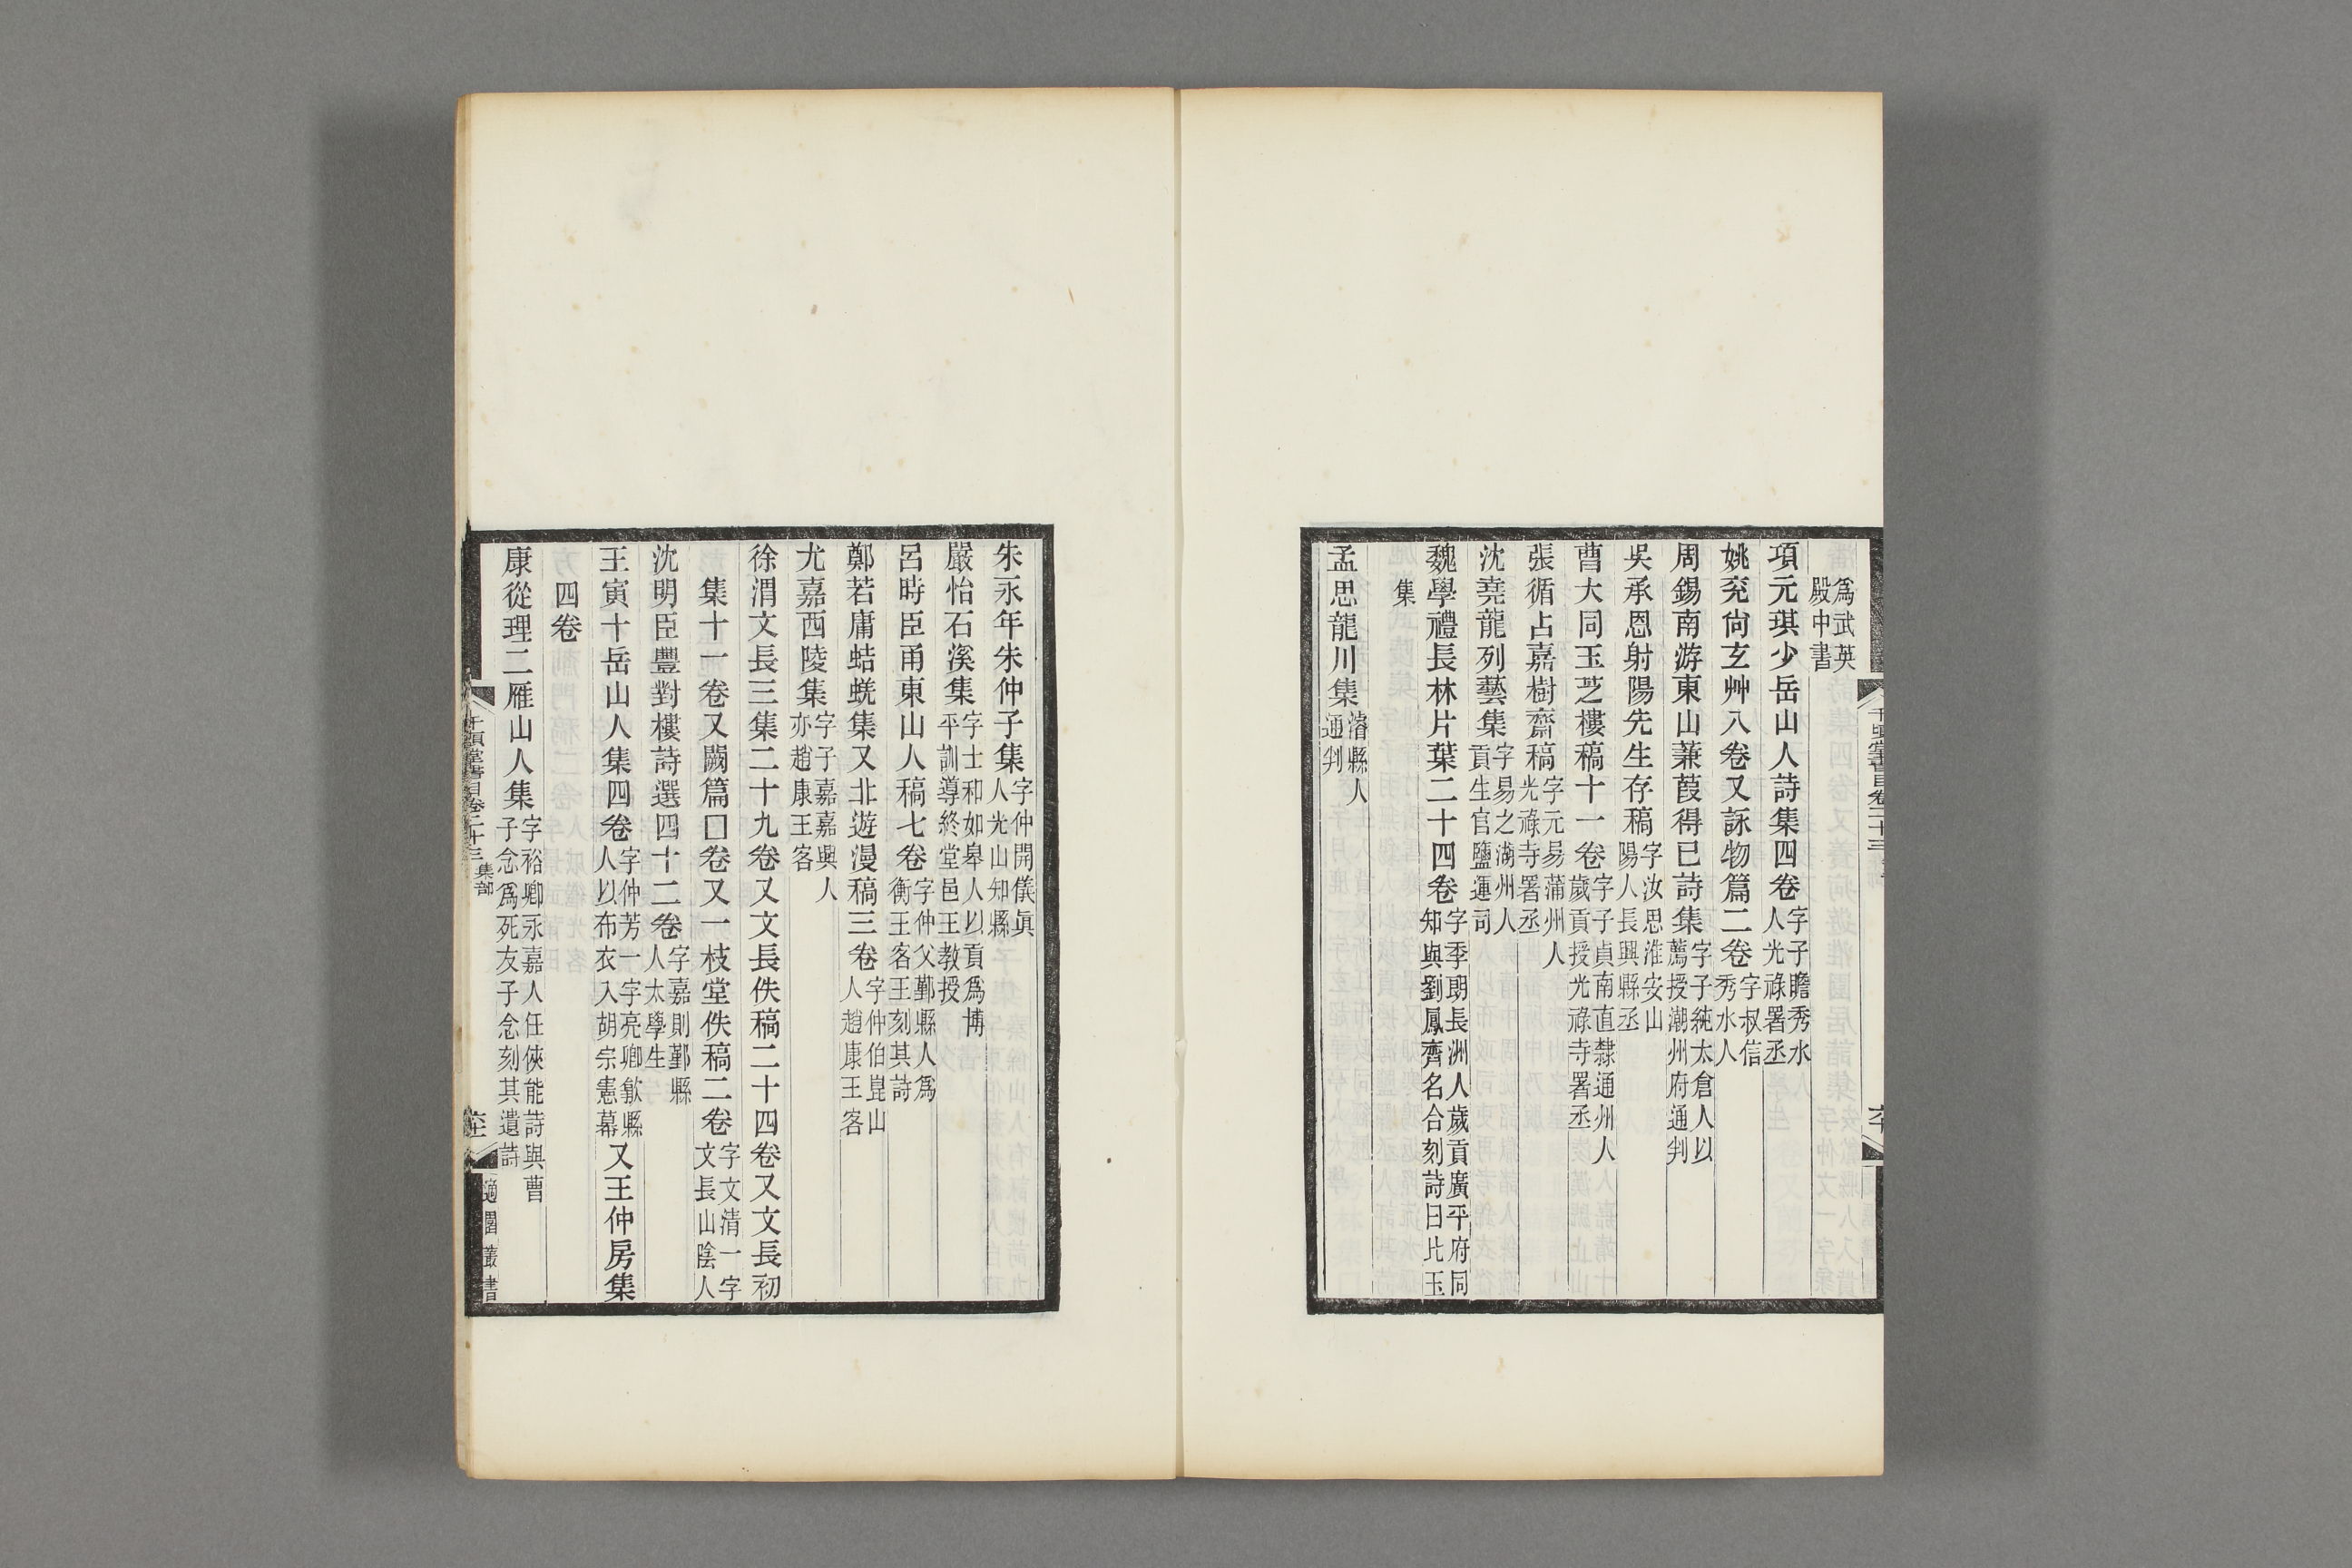 爲武英
殿中書
項元琪少岳山人詩集四卷字子瞻秀水人光祿署丞
姚兖尙玄艸八卷又詠物篇二卷字叔信秀水人
周錫南游東山蒹葭得已詩集字子純太倉人以薦授潮州府通判
吳承恩射陽先生存稿字汝思淮安山陽人長興縣丞
曹大同玉芝樓稿十一卷字子貞南直隸通州人歲貢授光祿寺署丞
張循占嘉樹齋稿字元易蒲州人光祿寺署丞
沈堯龍列藝集字易之湖州人貢生官鹽運司
魏學禮長林片葉二十四卷字季朗長洲人歲貢廣平府同知與劉鳳齊名合刻詩曰比玉
集
孟思龍川集濬縣人通判
千頃堂書目卷二十三
朱永年朱仲子集字仲開儀眞人光山知縣
嚴怡石溪集字士和如皋人以貢爲博平訓導終堂邑王教授
呂時臣甬東山人稿七卷字仲父鄞縣人爲衡王客王刻其詩
鄭若庸蛣蜣集又北遊漫稿三卷字仲伯崑山人趙康王客
尤嘉西陵集字子嘉嘉興人亦趙康王客
徐渭文長三集二十九卷又文長佚稿二十四卷又文長初
集十一卷又闕篇囗卷又一枝堂佚稿二卷字文清一字文長山陰人
沈明臣豐對樓詩選四十二卷字嘉則鄞縣人太學生
王寅十岳山人集四卷字仲芳一字亮卿歙縣人以布衣入胡宗憲幕又王仲房集
四卷
康從理二雁山人集字裕卿永嘉人任俠能詩與曹子念爲死友子念刻其遺詩
千頃堂書目卷二十三 集部
適園叢書